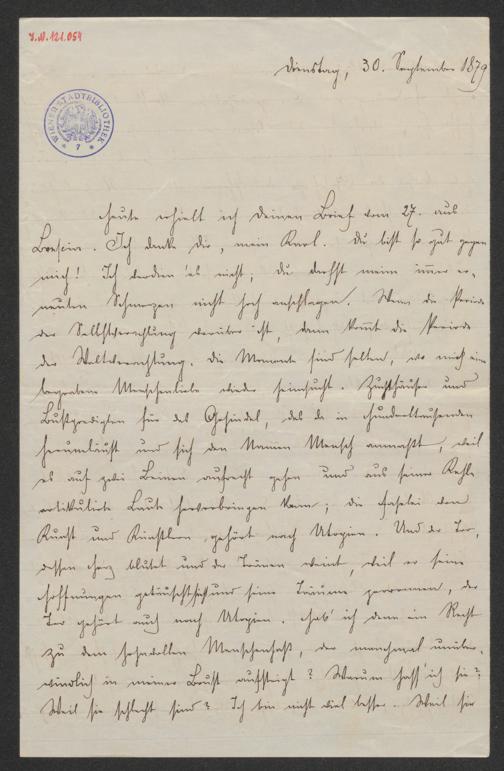 J.N. 121.054
WIENER STADTBIBLIOTHEK
* 7 *
Dienstag, 30. September 1879
Heute erhielt ich Deinen Brief vom 27. aus
Brescia. Ich danke Dir, mein Karl. Du bist so gut gegen
mich! Ich verdien' es nicht; Du darfst meine immer er-
neuten Schmerzen nicht hoch anschlagen. Wenn die Periode
der Selbstverachtung vorüber ist, dann kommt die Periode
der Weltverachtung. Die Momente sind selten, wo mich eine
begrabene Menschenliebe wieder heimsucht. Zuchthäuser und
Bußpredigten für das Gesindel, das da in Hunderttausenden
herumläuft und sich den Namen Mensch anmaßt, weil
es auf zwei Beinen aufrecht gehen und aus seiner Kehle
artikulirte Laute hervorbringen kann; die Faselei von
Kunst und Künstlern gehört nach Utopien. Und der Tor,
dessen Herz blutet und der Tränen weint, weil er seine
Hoffnungen getäuscht und seine Träume zerronnen, der
Tor gehört auch nach Utopien. Hab' ich denn ein Recht
zu dem hohnvollen Menschenhaß, der manchmal unüber-
windlich in meiner Brust aufsteigt? Warum hass' ich sie?
Weil sie schlecht sind? Ich bin nicht viel besser. Weil sie